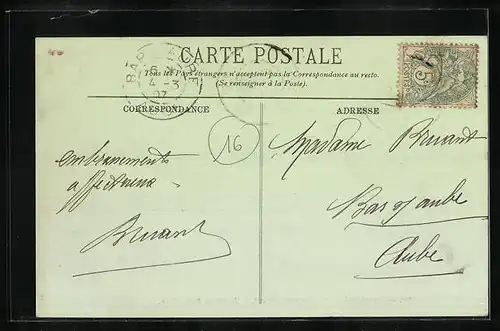 CARTE POSTALE
Tous les Pays étrangers n'acceptent pas la Correspondance au recto.
(Se renseigner à la Poste).
CORRESPONDANCE
ADRESSE
16
Madame Bruant
Bar s/ aube
Aube
embrassements
affectueux
Bruant
BAR
AUBE
4 -3
07
5